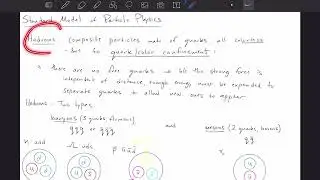 Standard Model of Particle Physics
Hadrons composite particles made of quarks all colorless
- but for quark/color confinement:
there are no free quarks - b/c the strong force is
independent of distance, enough energy must be expended to
separate quarks to allow new ones to appear
Hadrons - Two types
baryons (3 quarks, fermions) and mesons (2 quarks, bosons)
qqq or
n udd Λ uds
d u
d u